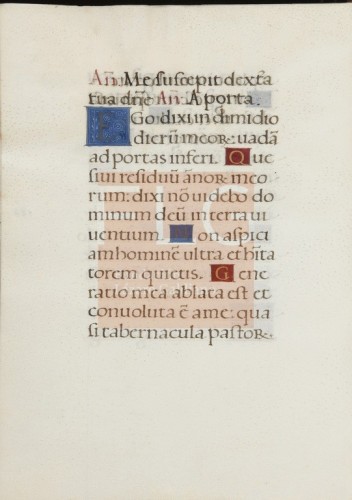 An̄. Me suscepit dextꝫa
tua dn̄e An̄. A porta.
EGo dixi in dimidio
dierū meoꝝ: uadā
ad portas inferi. Que
siui residuū ānoꝝ meo
rum: dixi nō uidebo do
minum deū in terra ui
uentium Non aspici
am hominē ultra et hīta
torem quietis. Gene
ratio mea ablata est et
conuoluta ē a me: qua
si tabernacula pastoꝝ.